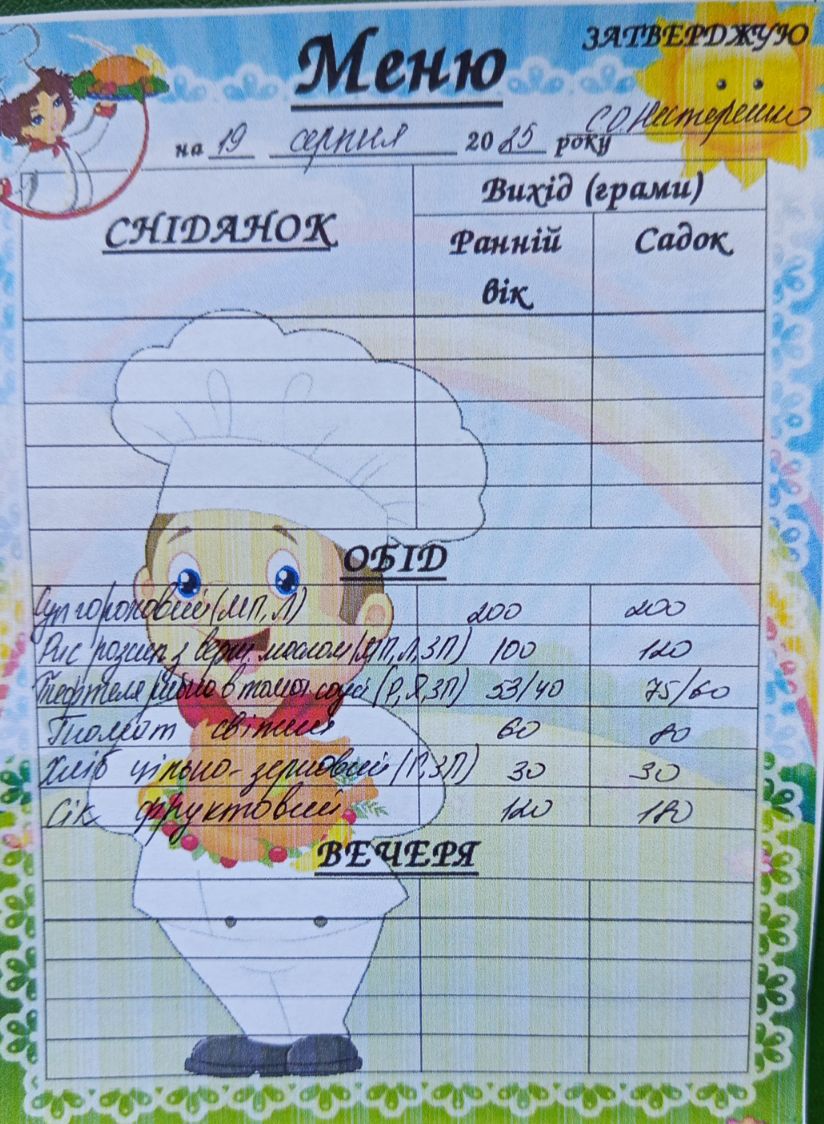 ЗАТВЕРДЖУЮ
Меню
С.О. Нестеренко
на 19 серпня 2025 року
СНІДАНОК
Вихід (грами)
Ранній вік
Садок
ОБІД
Суп гороховий (МП, Л) 200 200
Рис розсип з верш. маслом (МП, Л, ЗП) 100 120
Тефтеля рибна в томат соусі (Р, Я, ЗП) 53/40 75/60
Томат свіжий 60 80
Хліб цільно-зерновий (Г, ЗП) 30 30
Сік фруктовий 120 180
ВЕЧЕРЯ